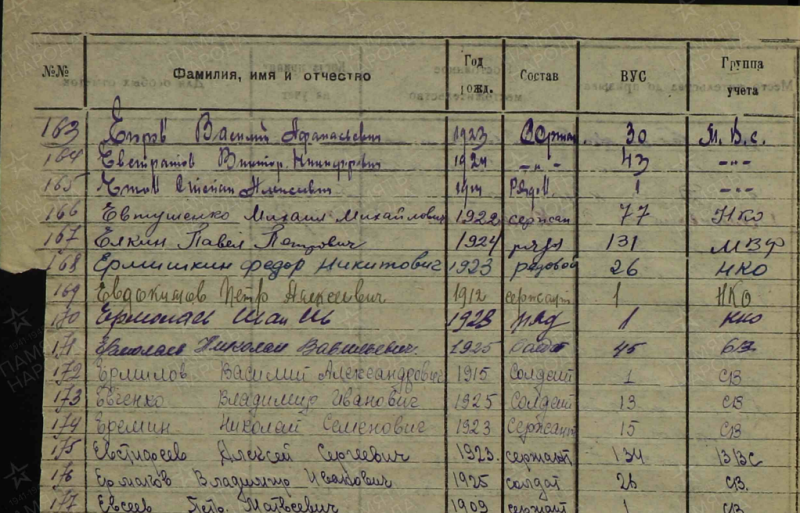 №№ Фамилия, имя и отчество Год рожд. Состав ВУС Группа учета
163 Егоров Василий Афанасьевич 1923 Сержан. 30 М.В.с.
164 Евстратов Виктор 1924 -"- 43 -"-
165 Степан Алексеевич Рядов. 1 -"-
166 Евтушенко Михаил Михайлович 1922 сержан 77 НКО
167 Елкин Павел Петрович 1924 рядов 131
168 Ермишкин Федор Никитович 1923 рядовой 26 НКО
169 Евдокимов Петр Алексеевич 1912 сержант 1 НКО
170 Ермолаев 1923 ряд 1 нко
171 Ермолаев Николай Васильевич 1925 солдат 45
172 Ермилов Василий Александрович 1915 Солдат 1 СВ
173 Евченко Владимир Иванович 1925 Солдат 13 СВ
174 Еремин Николай Семенович 1923 Сержант 15 СВ
175 Евстифеев Алексей Сергеевич 1923 сержант 134
176 Ермаков Владимир Иванович 1925 солдат 26 СВ.
177 Евсеев Петр Матвеевич 1909 сержант 1 СВ